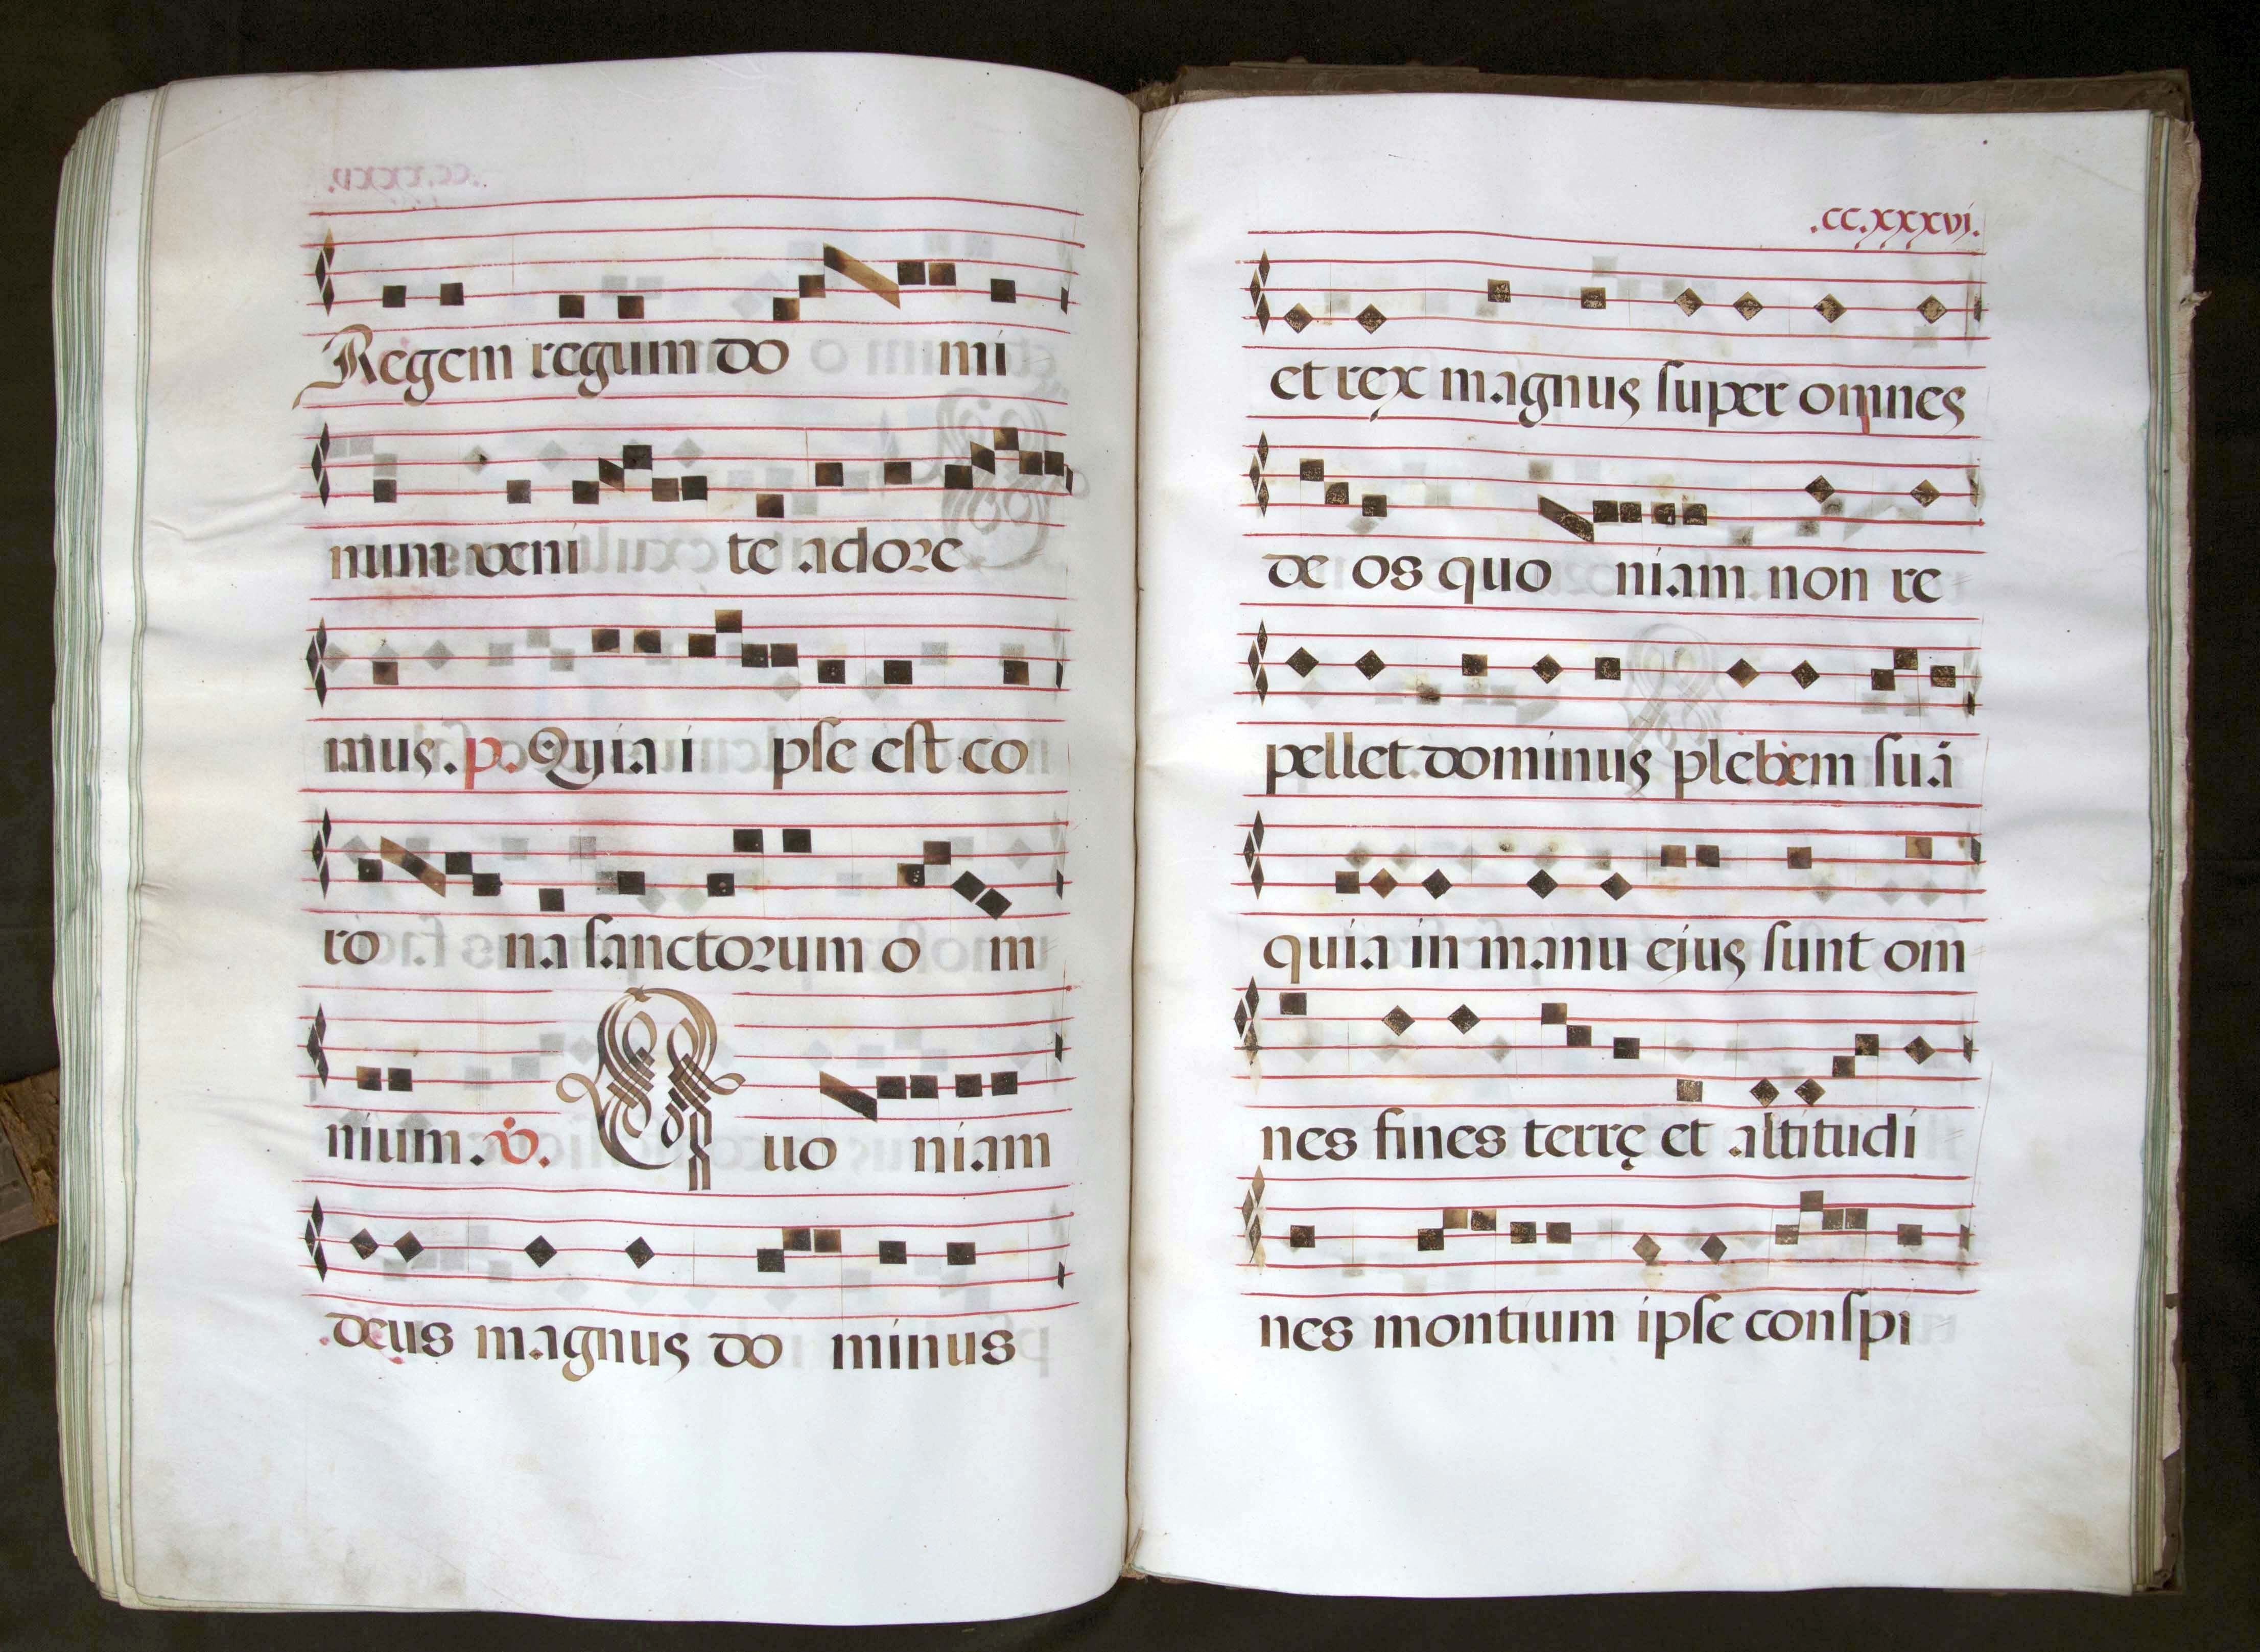 Regem regum do mi
num veni te adore
mus. p. Quia i pse est co
ro na sanctorum o m
nium. v. Quo niam
deus magnus do minus
.cc.xxxvi.
et rex magnus super omnes
de os quo niam non re
pellet dominus plebem suã
quia in manu ejus sunt om
nes fines terrę et altitudi
nes montium ipse conspi